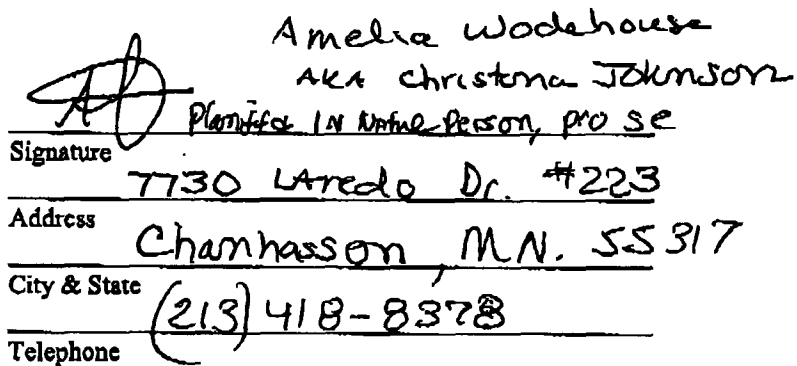 Amelia Wodehouse
AKA Christina Johnson
Plaintiff IN Person, pro se
Signature
7730 LAredo Dr. #223
Address
Chanhasson, MN. 55317
City & State
(213) 418-8378
Telephone